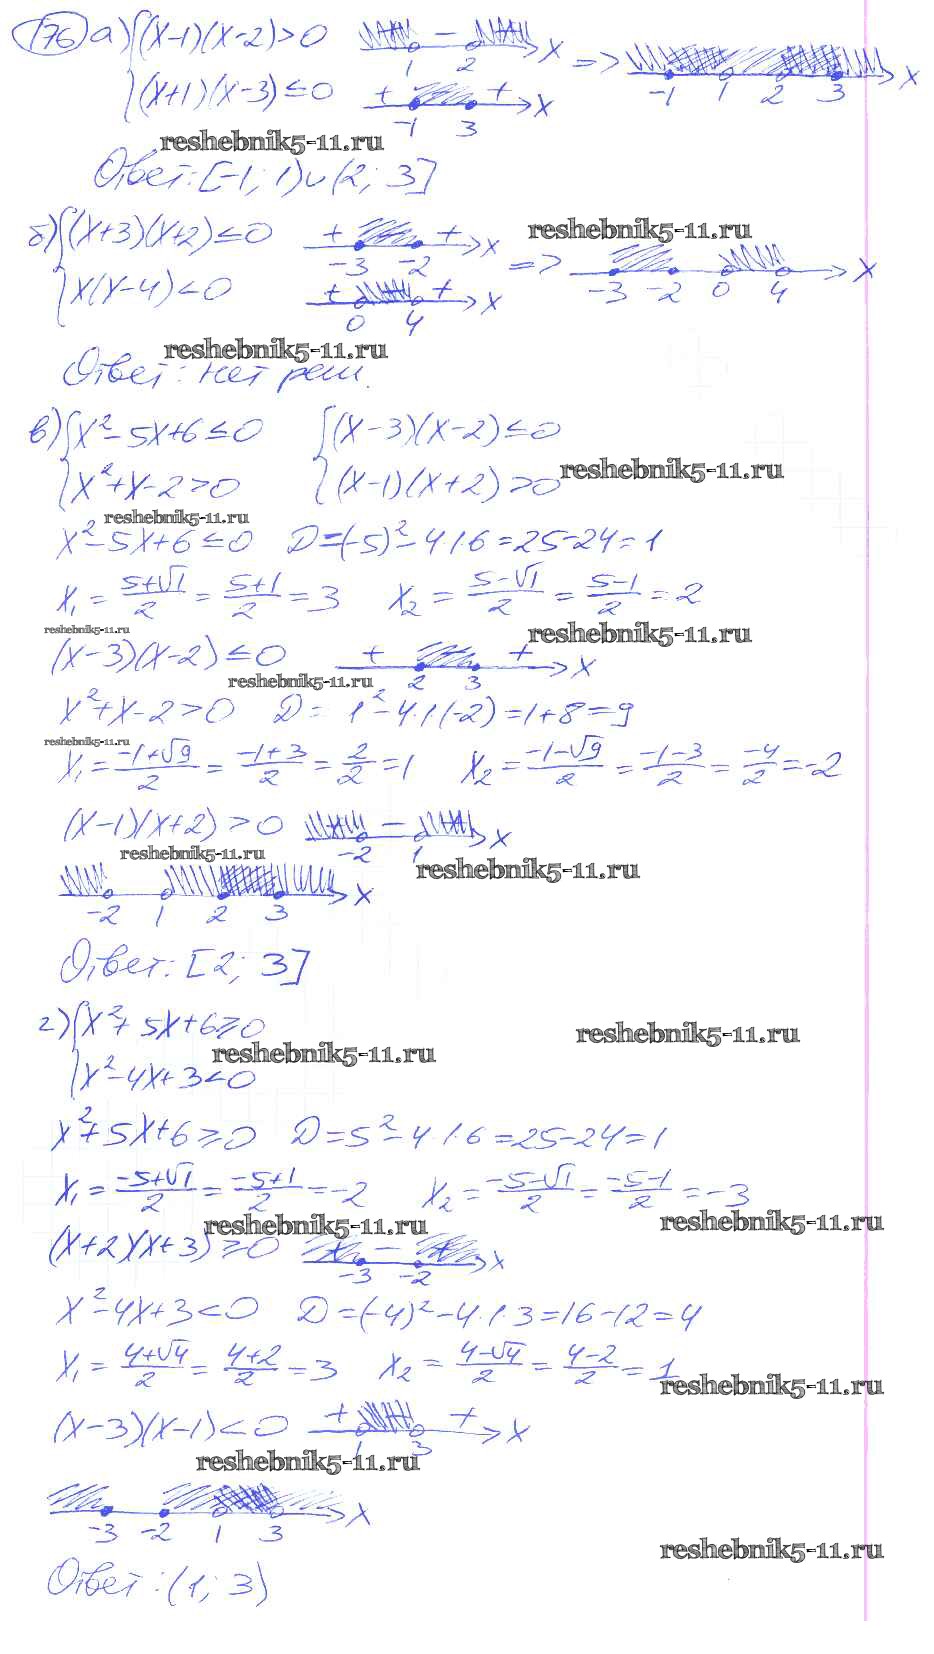 176 а) { (x-1)(x-2)>0 + - + x
1 2
=> -1 1 2 3 x
(x+1)(x-3)≤0 + + x
-1 3
reshebnik5-11.ru
Ответ: [-1; 1)∪(2; 3]
б) { (x+3)(x+2)≤0 + - + x
-3 -2
reshebnik5-11.ru
=> -3 -2 0 4 x
x(x-4)<0 + - + x
0 4
reshebnik5-11.ru
Ответ: нет реш.
в) { x²-5x+6≤0 { (x-3)(x-2)≤0
x²+x-2>0 (x-1)(x+2)>0
reshebnik5-11.ru
reshebnik5-11.ru
x²-5x+6≤0 D=(-5)²-4·1·6=25-24=1
x₁=(5+√1)/2=(5+1)/2=3 x₂=(5-√1)/2=(5-1)/2=2
reshebnik5-11.ru reshebnik5-11.ru
(x-3)(x-2)≤0 + - + x
2 3
reshebnik5-11.ru
x²+x-2>0 D=1²-4·1·(-2)=1+8=9
reshebnik5-11.ru
x₁=(-1+√9)/2=(-1+3)/2=2/2=1 x₂=(-1-√9)/2=(-1-3)/2=-4/2=-2
(x-1)(x+2)>0 + - + x
-2 1
reshebnik5-11.ru reshebnik5-11.ru
-2 1 2 3 x
Ответ: [2; 3]
г) { x²+5x+6≥0
reshebnik5-11.ru reshebnik5-11.ru
x²-4x+3<0
x²+5x+6≥0 D=5²-4·1·6=25-24=1
x₁=(-5+√1)/2=(-5+1)/2=-2 x₂=(-5-√1)/2=(-5-1)/2=-3
reshebnik5-11.ru reshebnik5-11.ru
(x+2)(x+3)≥0 + - + x
-3 -2
x²-4x+3<0 D=(-4)²-4·1·3=16-12=4
x₁=(4+√4)/2=(4+2)/2=3 x₂=(4-√4)/2=(4-2)/2=1
reshebnik5-11.ru
(x-3)(x-1)<0 + - + x
1 3
reshebnik5-11.ru
-3 -2 1 3 x
reshebnik5-11.ru
Ответ: (1; 3)